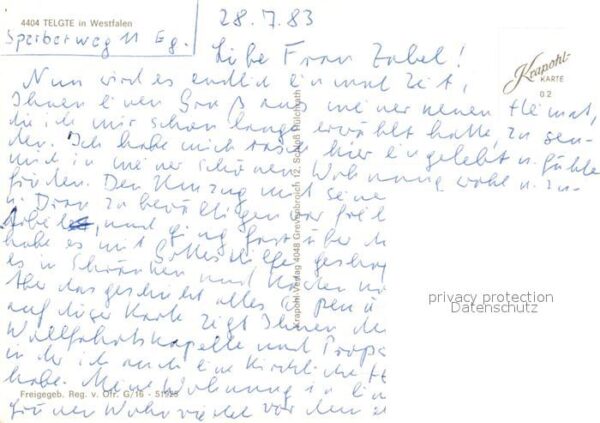 4404 TELGTE in Westfalen
Sperberweg 11 Eg.
28.7.83
Liebe Frau Zabel!
Nun wird es endlich einmal Zeit,
Ihnen einen Gruß aus meiner neuen Heimat,
die ich mir schon lange erwählt hatte, zu sen-
den. Ich habe mich rasch hier eingelebt u. fühle
mich in meiner schönen Wohnung wohl u. zu-
frieden. Den Umzug mit seine
u. Dran zu bewältigen war
und ging fast über
habe es mit Gottes Hilfe gescha
es in Schränken und Kästen
Aber das geschieht alles
auf dieser Karte zeigt Ihnen
Wallfahrtskapelle und Props
in der ich auch eine Kirchliche
habe. Meine Wohnung in
grünen Wohnviertel vor den
Krapohl-Verlag 4048 Grevenbroich 12, Schloß Hülchrath
Krapohl-
KARTE
02
privacy protection
Datenschutz
Freigegeb. Reg. v. Ofr. G/16 - 51925